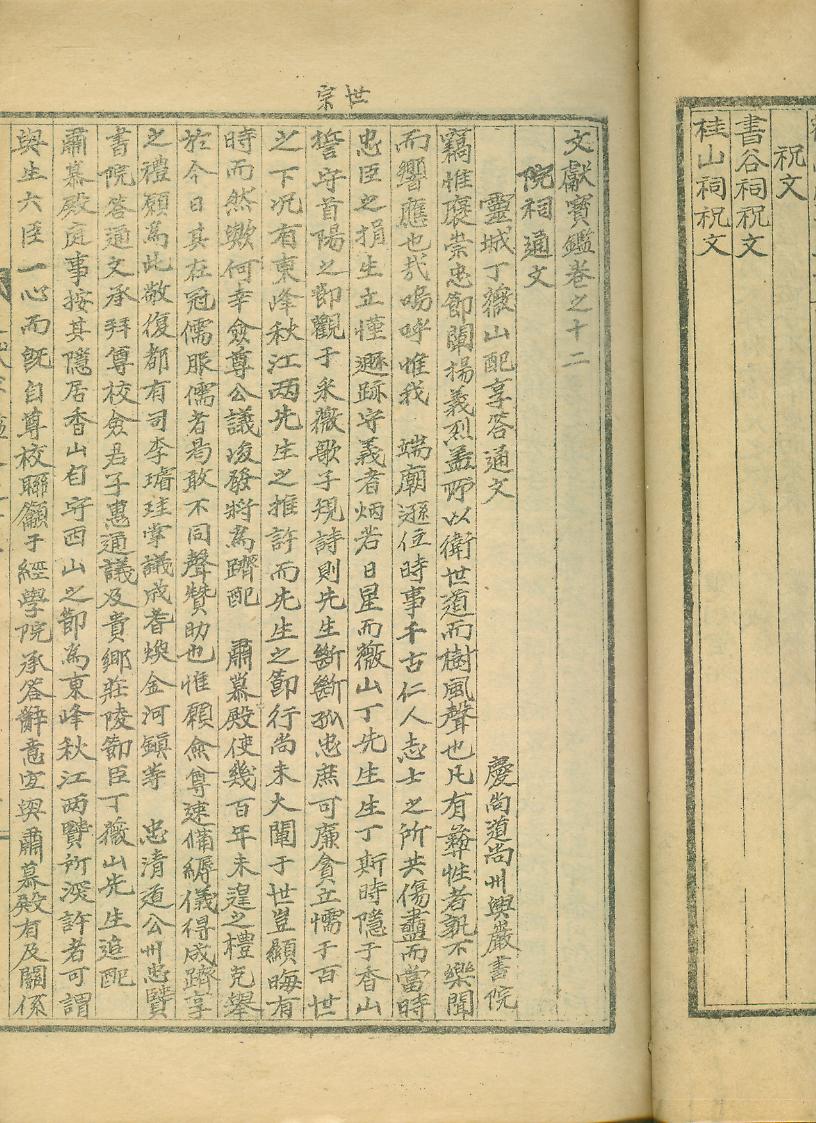 祝文
書谷祠祝文
桂山祠祝文
世宗
文獻寶鑑卷之十二
院祠通文
靈城丁薇山配享答通文 慶尚道尚州興巖書院
竊惟褒崇忠節闡揚義烈盖所以衛世道而樹風聲也凡有彜性者孰不樂聞
而響應也哉嗚呼惟我 端廟遜位時事千古仁人志士之所共傷衋而當時
忠臣之捐生立慬遯跡守義者炳若日星而薇山丁先生生丁斯時隱于香山
誓守首陽之節觀于采薇歌子規詩則先生斷斷孤忠庶可廉貪立懦于百世
之下况有東峰秋江两先生之推許而先生之節行尚未大闡于世豈顯晦有
時而然歟何幸僉尊公議峻發將爲躋配 肅慕殿使幾百年未遑之禮克擧
於今日其在冠儒服儒者曷敢不同聲贊助也惟願僉尊速備縟儀得成躋享
之禮願爲此敬復都有司李璿珪掌議成耆煥金河鎭等 忠清道公州忠賢
書院答通文承拜尊校僉君子惠通議及貴鄉莊陵節臣丁薇山先生追配
肅慕殿庭事按其隱居香山自守西山之節爲東峰秋江两賢所深許者可謂
與生六臣一心而旣自尊校聯籲于經學院承答辭意宜與肅慕殿有及關係